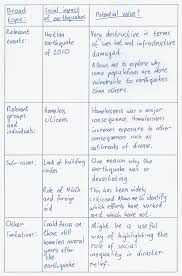 Broad topic:
Social impact of earthquakes
Potential value?
Relevant events:
Haitian earthquake of 2010
Very destructive in terms of lives lost and infrastructure damaged.
Allows me to explore why some populations are more vulnerable to earthquakes than others
Relevant groups and individuals:
Homeless citizens
Homelessness was a major consequence. Homelessness increases exposure to other consequences such as outbreaks of disease.
Sub-issues:
Lack of building codes
One reason why the earthquake was so devastating
Role of NGOs and foreign aid
This has been widely criticised. Allows me to identify which efforts have worked and which have not
Other limitations:
Could focus on those still homeless several years after the earthquake
Might be a useful way of highlighting the role of social inequality in disaster relief.